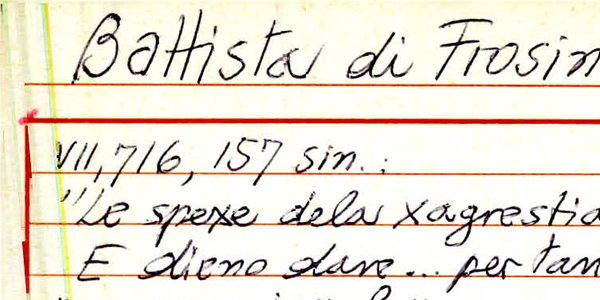 Battista di Frosin
VII, 716, 157 sin.:
"Le spexe dela xagrestia
E dieno dare... per tan